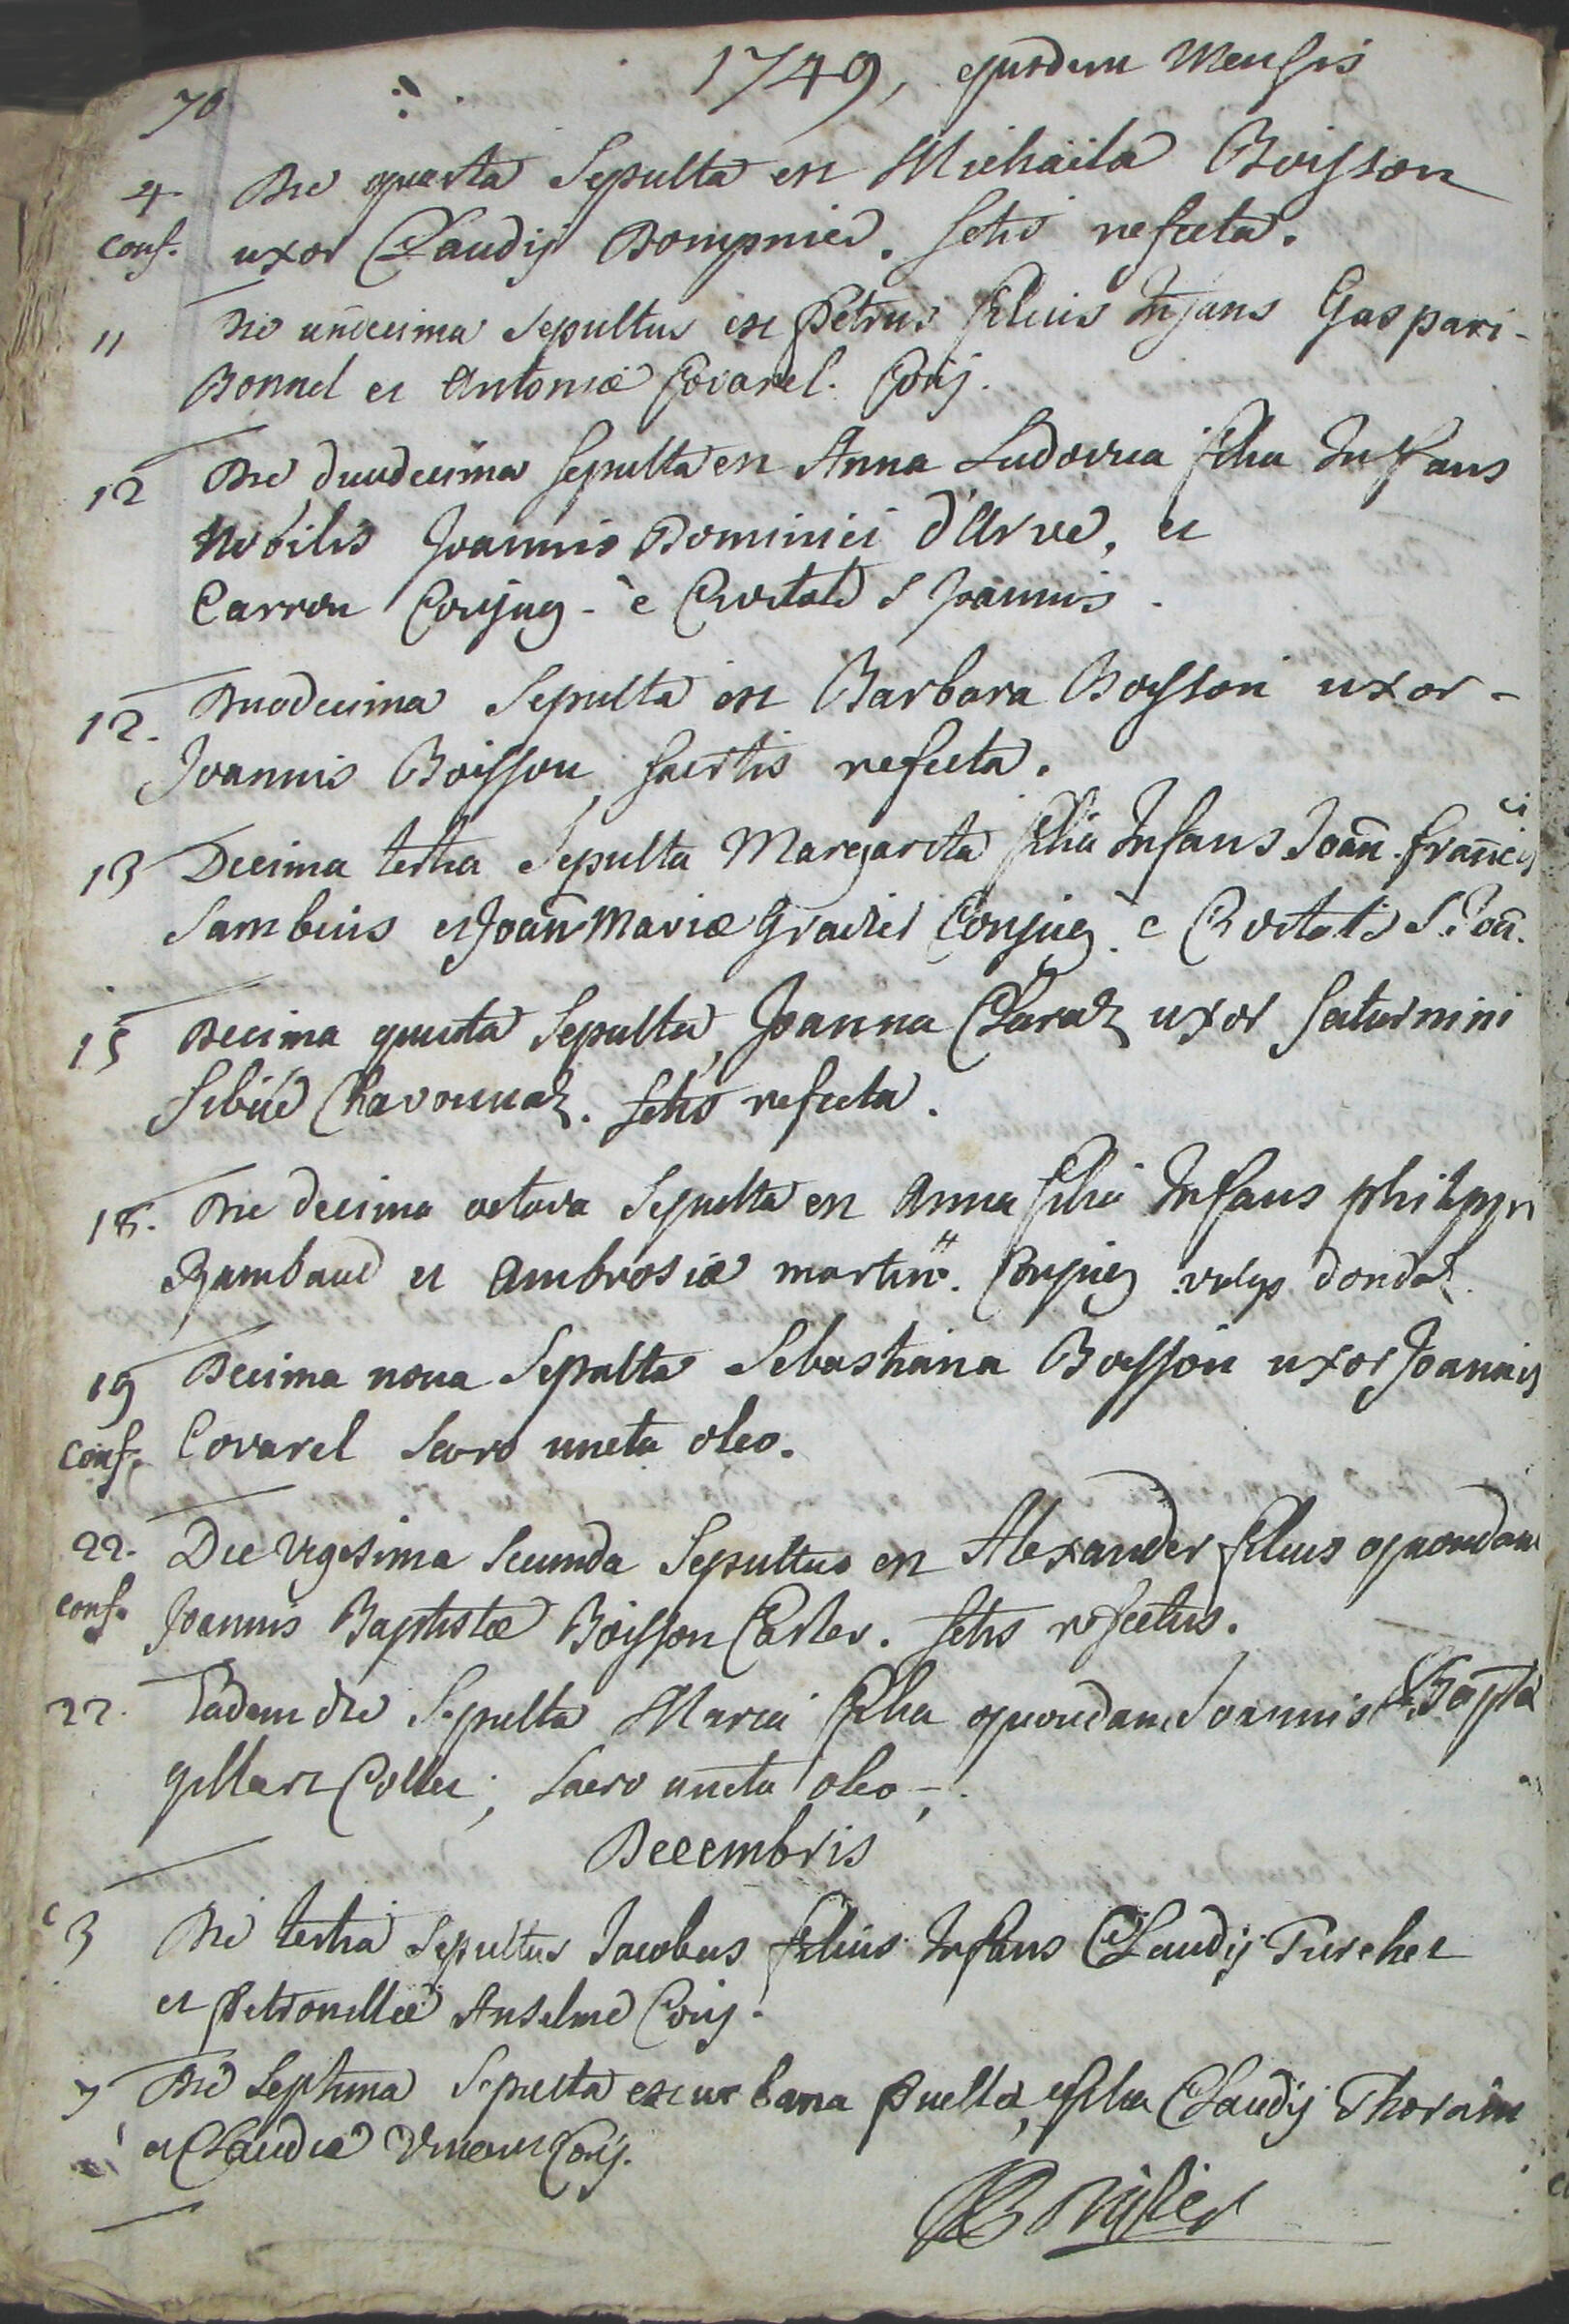 1749, ejusdem Mensis
70
4. Die quarta Sepulta est Michaëla Boisson
conf. uxor Claudij Dompnier. sctis refecta.
11 Die undecima Sepultus est Petrus filius Infans Gaspari-
Bonnel et Antoniæ Covarel. Conj.
12 Die duodecima sepulta est Anna Ludovica filia Infans
Nobilis Joannis Dominici d'Arve, et
Carron Conjug. è Civitate S Joannis.
12. Duodecima Sepulta est Barbara Boisson uxor-
Joannis Boisson, sacrtis refecta.
13 Decima tertia Sepulta Margarita filia Infans Joan̄. fran̄cis ci
Sambuis et Joan̄ Mariæ Gravier Conjug. e Civitate S. Joan̄.
15 Decima quinta Sepulta, Joanna Claraz uxor Saturnini
Sibué Chavonnaz. sctis refecta.
18. Die decima octava Sepulta est Anna filia Infans philippi
Rambaud et Ambrosiæ martin. Conjug vulgo dondaz.
19 Decima nona Sepulta Sebastiana Boisson uxor Joannis
conf. Covarel sacro uncta oleo.
22. Die vigesima secunda Sepultus est Alexander filius quondam
conf. Joannis Baptistæ Boisson Carles. sctis refectus.
22. Eadem die Sepulta Maria filia quondam Joannis Bapta
Collet; sacro uncta oleo-;
Decembris
3 Die tertia Sepultus Jacobus filius Infans Claudij Turchet
et Petronillæ Anselme Conj.
7 Die Septima Sepulta est urbana puella, filia Claudij Thorain
et Claudiæ Vincent Conj.